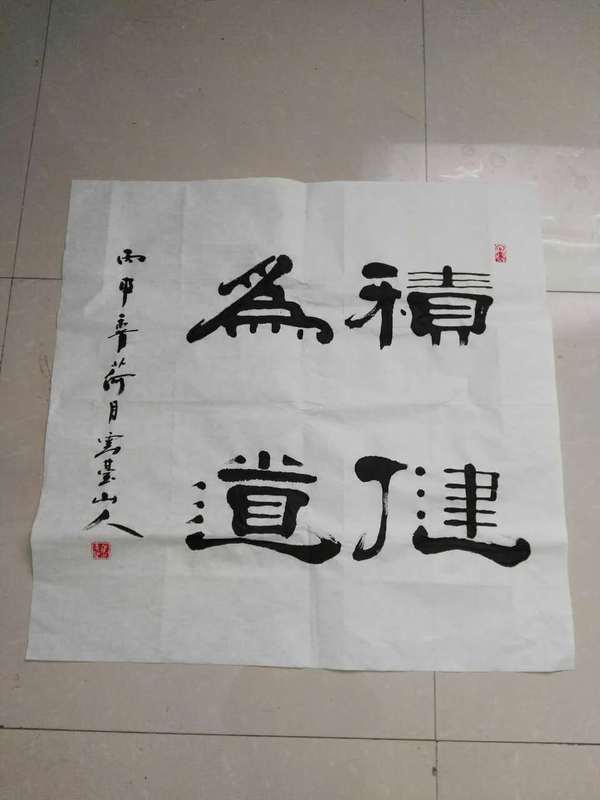 積健
為道
丙申年荷月雲臺山人